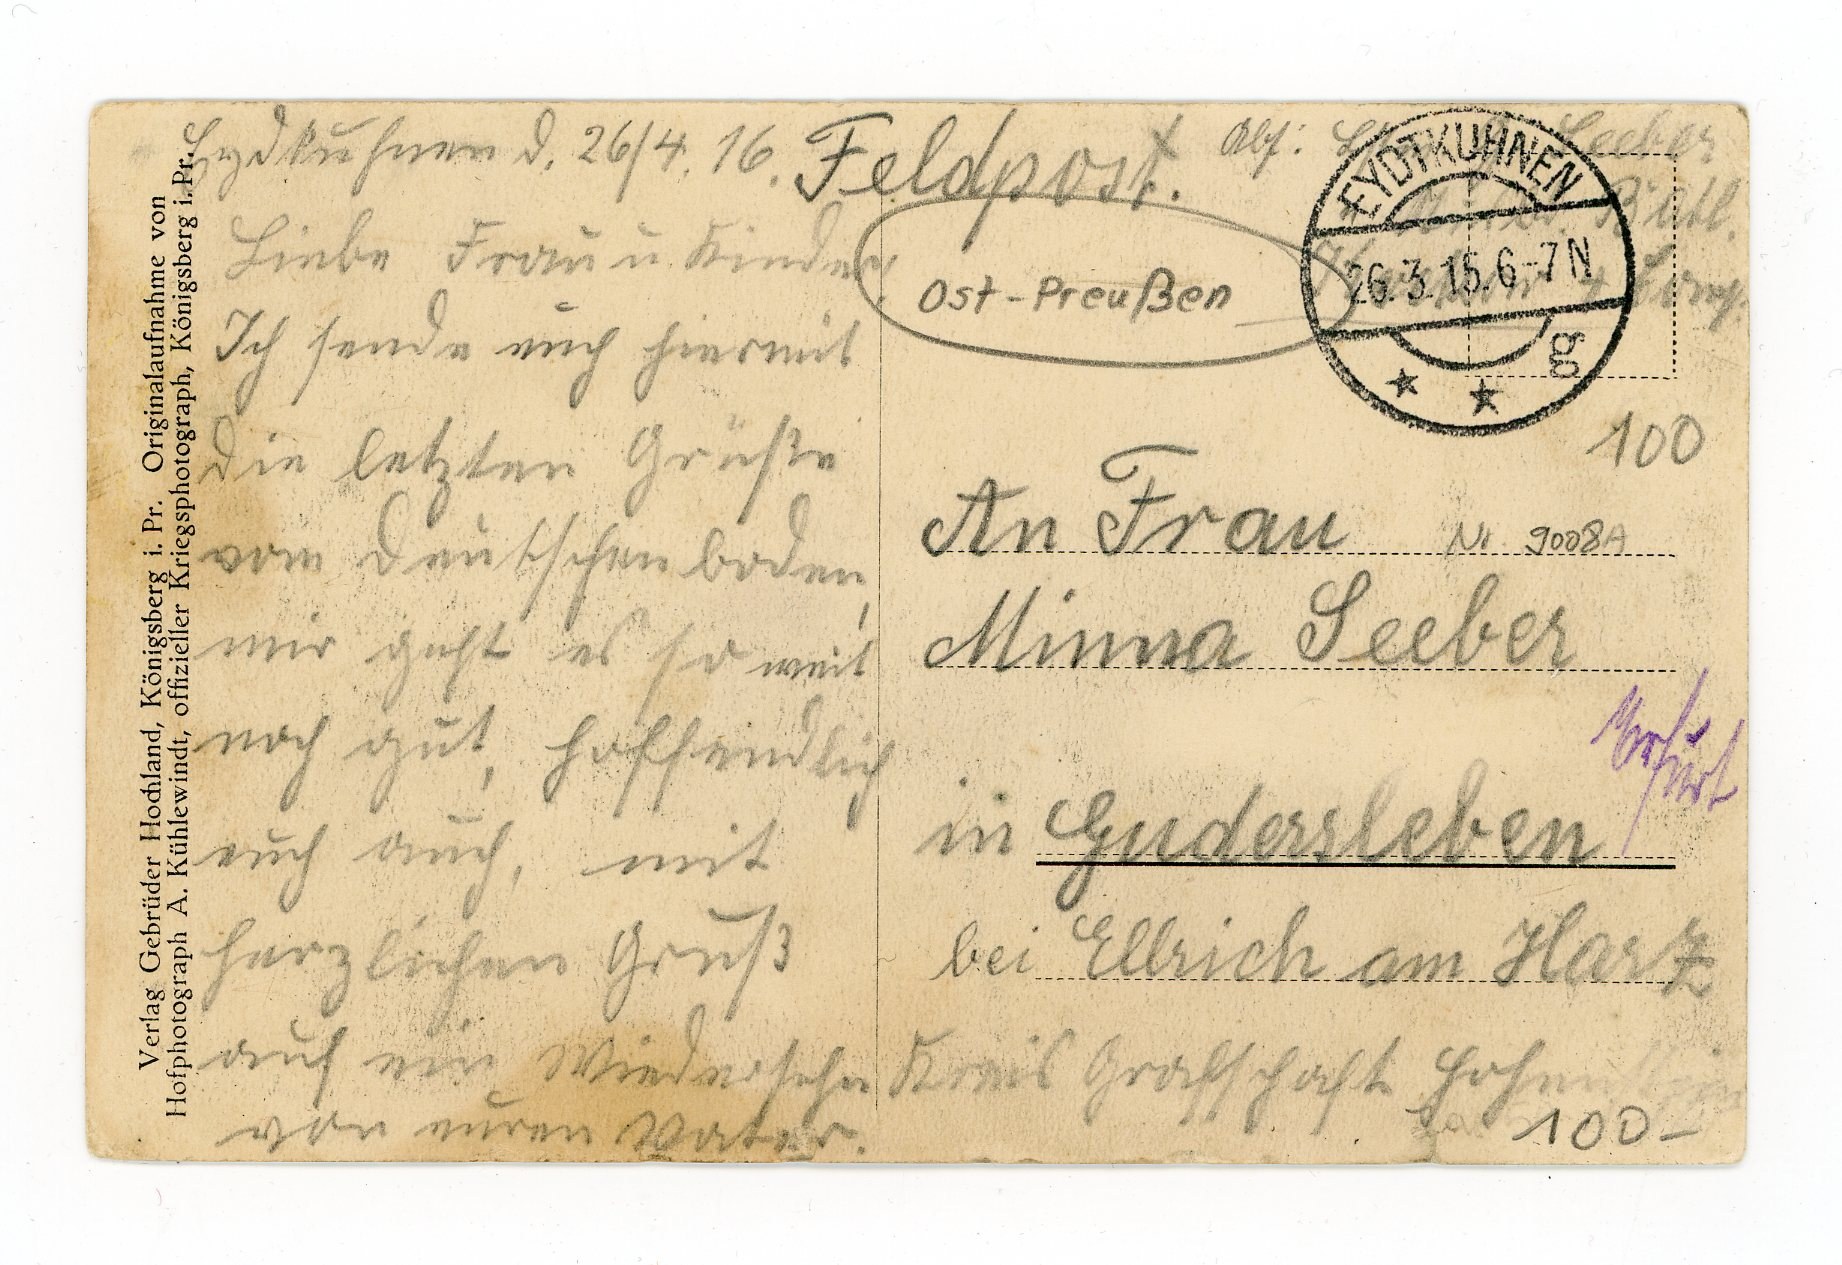 Eydkuhnen d. 26/4. 16.
Feldpost.
Liebe Frau u Kinder
Ich sende euch hiermit
die letzten Grüße
vom deutschen boden,
mir geht es so weit
noch gut, hoffendlich
euch auch, mit
herzlichen Gruß
auf ein Wiedersehn
von euren Vater.
Abs: Seeber
Batl.
4 Comp.
EYDTKUHNEN
26.3.15.6-7N
* * g
Ost-Preußen
100
An Frau
Nr. 9008A
Minna Seeber
Erfurt
in Gudersleben
bei Ellrich am Harz
Kreis Grafschaft Hohenstein
100-
Verlag Gebrüder Hochland, Königsberg i. Pr. Originalaufnahme von
Hofphotograph A. Kühlewindt, offizieller Kriegsphotograph, Königsberg i. Pr.